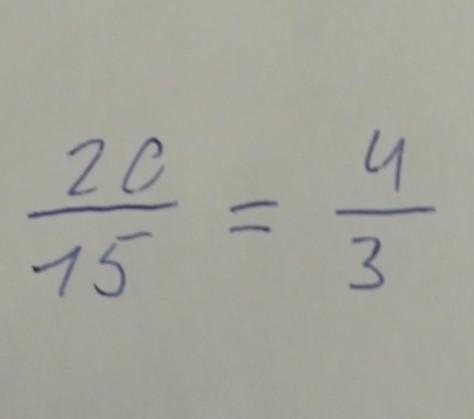 20/15 = 4/3